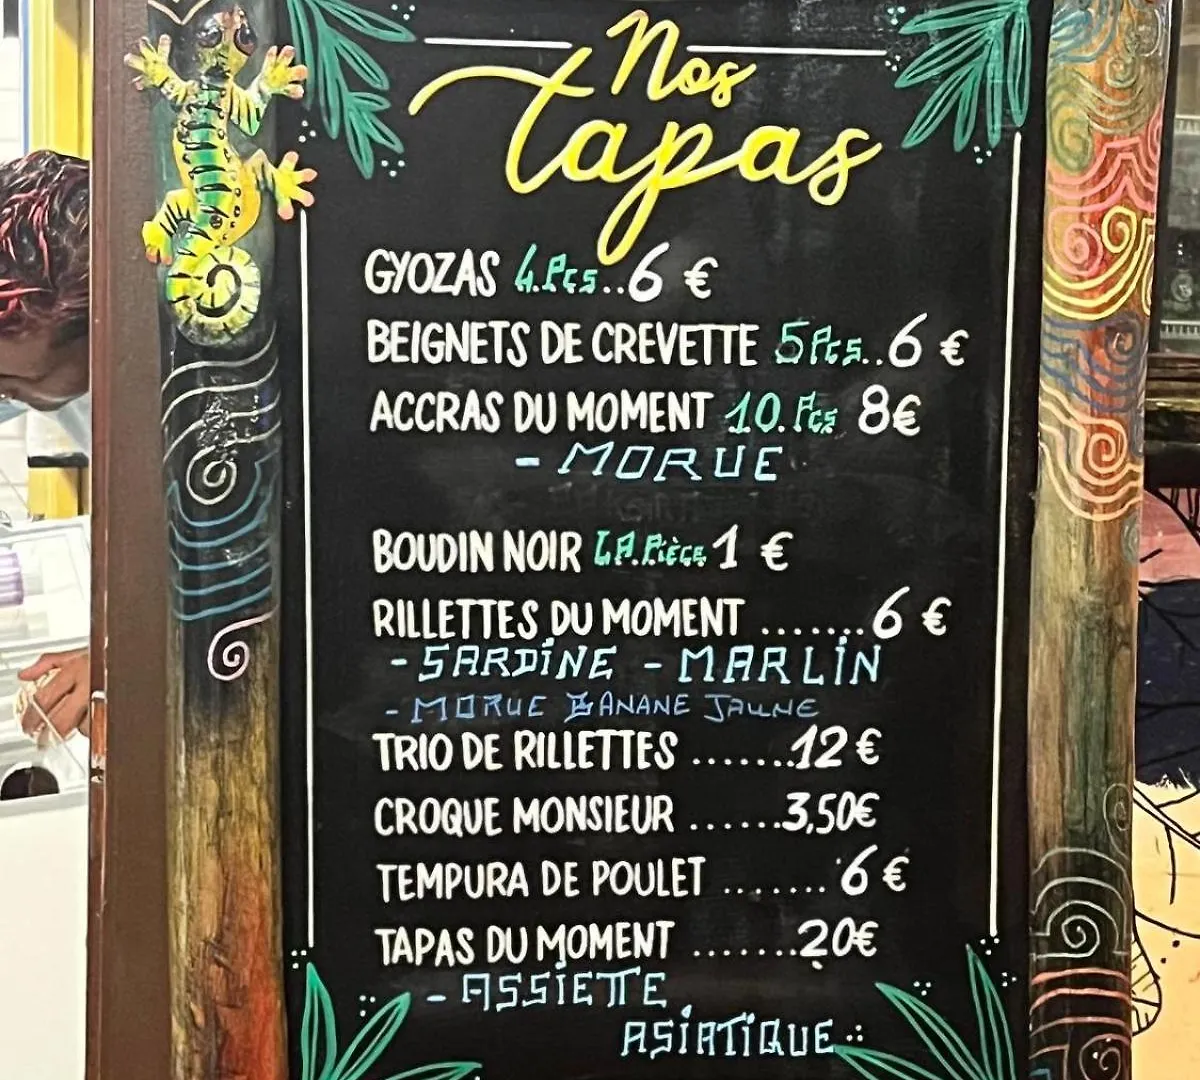 Nos
Tapas
GYOZAS 4.Pcs..6 €
BEIGNETS DE CREVETTE 5Pcs..6 €
ACCRAS DU MOMENT 10.Pcs 8€
- MORUE
BOUDIN NOIR LA.PiÈCE 1 €
RILLETTES DU MOMENT .......6 €
- SARDiNE - MARLiN
- MORUE BANANE JAUNE
TRIO DE RILLETTES .......12 €
CROQUE MONSIEUR ......3,50€
TEMPURA DE POULET ....... 6 €
TAPAS DU MOMENT .......20€
- ASSiETTE
ASiATiQUE